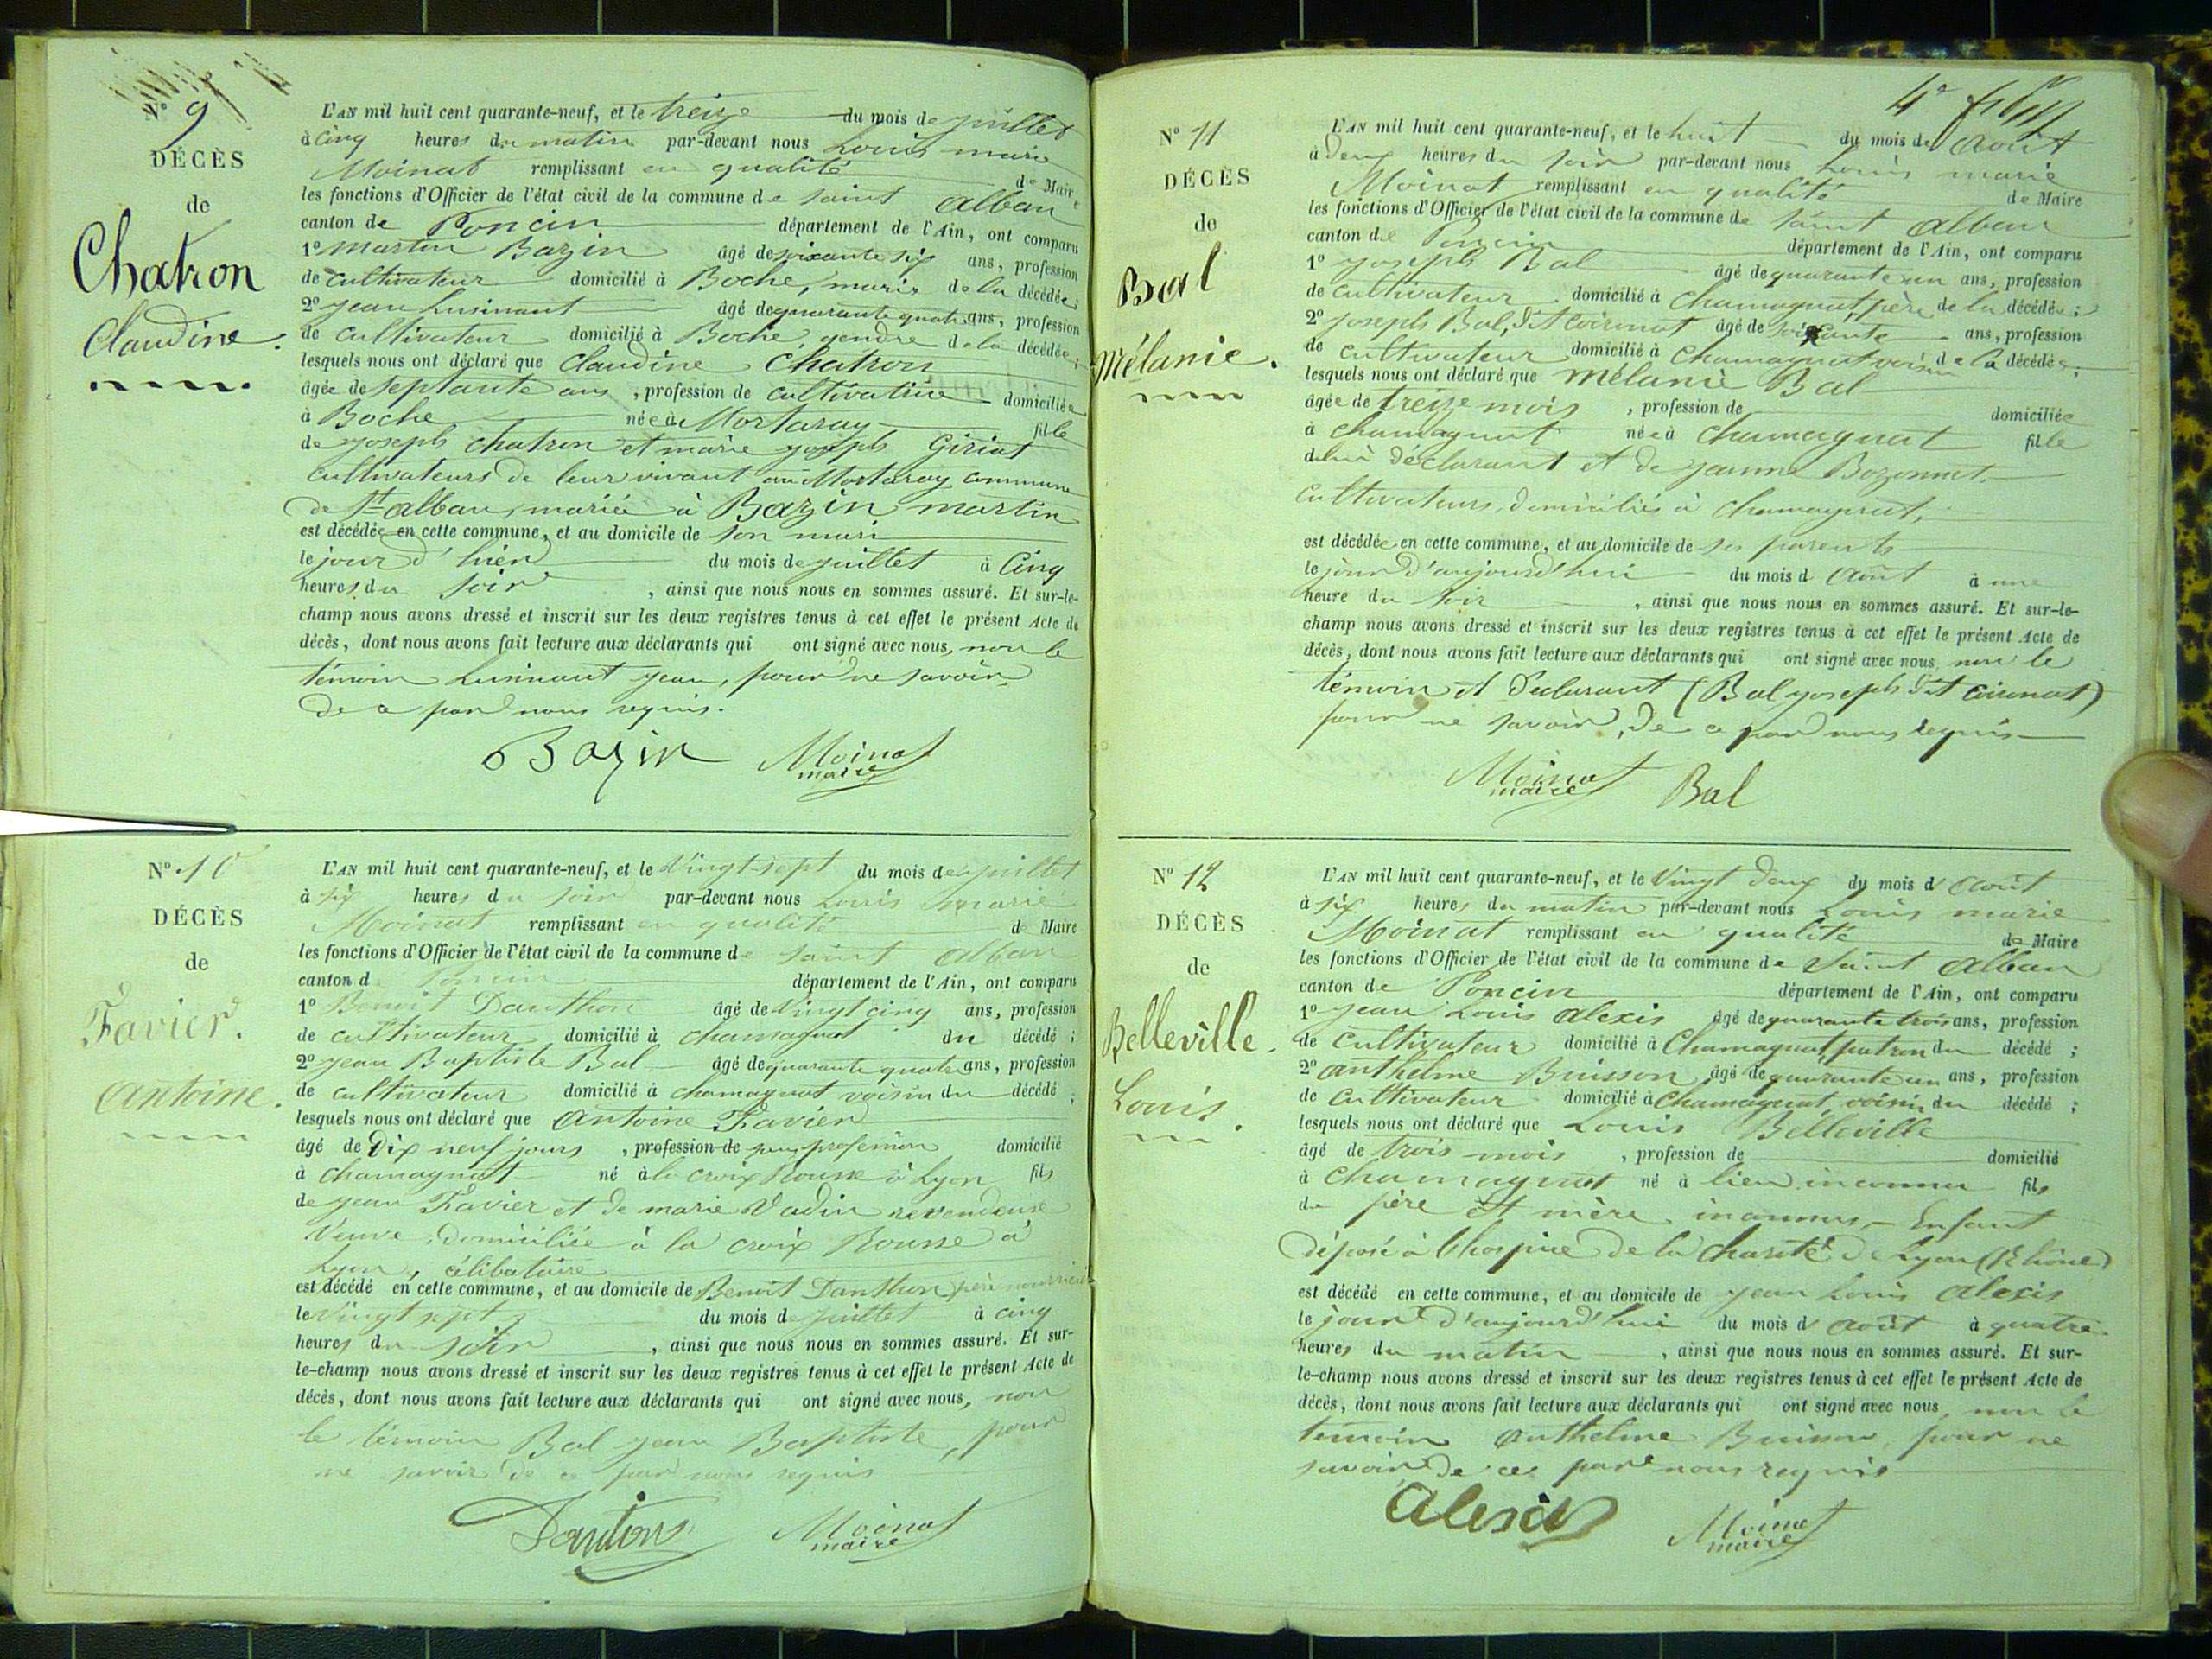 Nº 9
DÉCÈS
de
Chatron
Claudine.
L'AN mil huit cent quarante-neuf, et le treize du mois de juillet
à cinq heures du matin par-devant nous Louis marie
Moinat remplissant en qualité de Maire
les fonctions d'Officier de l'état civil de la commune de saint alban
canton de Poncin département de l'Ain, ont comparu
1º martin Bazin âgé de soixante six ans, profession
de cultivateur domicilié à Boche, mari de la décédée;
2º jean Lusinant âgé de quarante quatre ans, profession
de cultivateur domicilié à Boche, gendre de la décédée;
lesquels nous ont déclaré que Claudine Chatron
âgée de septante ans, profession de cultivatrice domiciliée
à Boche née à Mortaray fille
de joseph chatron et marie joseph Giriat
cultivateurs de leur vivant au Mortaray commune
de St alban, mariée à Bazin martin
est décédée en cette commune, et au domicile de son mari
le jour d'hier du mois de juillet à cinq
heures du soir, ainsi que nous nous en sommes assuré. Et sur-le-
champ nous avons dressé et inscrit sur les deux registres tenus à cet effet le présent Acte de
décès, dont nous avons fait lecture aux déclarants qui ont signé avec nous, non le
témoin Lusinant jean, pour ne savoir
de ce par nous requis.
Bazin Moinat
maire
Nº 10
DÉCÈS
de
Favier.
Antoine.
L'AN mil huit cent quarante-neuf, et le vingt-sept du mois de juillet
à six heures du soir par-devant nous Louis marie
Moinat remplissant en qualité de Maire
les fonctions d'Officier de l'état civil de la commune de saint alban
canton d Poncin département de l'Ain, ont comparu
1º Benoit Danthon âgé de vingt cinq ans, profession
de cultivateur domicilié à chamagnat du décédé;
2º jean Baptiste Bal âgé de quarante quatre ans, profession
de cultivateur domicilié à chamagnat voisin du décédé;
lesquels nous ont déclaré que Antoine Favier
âgé de dix neuf jours, profession de sans profession domicilié
à chamagnat né à la croix Rousse à Lyon fils
de jean Favier et de marie Vadin revendeuse
veuve, domiciliée à la croix Rousse à
Lyon, célibataire
est décédé en cette commune, et au domicile de Benoit Danthon père nourricier
le vingt sept du mois de juillet à cinq
heures du soir, ainsi que nous nous en sommes assuré. Et sur-
le-champ nous avons dressé et inscrit sur les deux registres tenus à cet effet le présent Acte de
décès, dont nous avons fait lecture aux déclarants qui ont signé avec nous, non
le témoin Bal jean Baptiste, pour
ne savoir de ce par nous requis
Danton Moinat
maire
4e
Nº 11
DÉCÈS
de
Bal
Mélanie.
L'AN mil huit cent quarante-neuf, et le huit du mois de Août
à deux heures du soir par-devant nous Louis marie
Moinat remplissant en qualité de Maire
les fonctions d'Officier de l'état civil de la commune de saint alban
canton de Poncin département de l'Ain, ont comparu
1º joseph Bal âgé de quarante un ans, profession
de cultivateur domicilié à chamagnat, père de la décédée;
2º joseph Bal, dit Coironat âgé de soixante ans, profession
de cultivateur domicilié à chamagnat voisin de la décédée;
lesquels nous ont déclaré que mélanie Bal
âgée de treize mois, profession de domiciliée
à chamagnat née à chamagnat fille
dudit déclarant et de jeanne Bozonnet
cultivateurs, domiciliés à chamagnat,
est décédée en cette commune, et au domicile de ses parents
le jour d'aujourd'hui du mois d Août à une
heure du soir, ainsi que nous nous en sommes assuré. Et sur-le-
champ nous avons dressé et inscrit sur les deux registres tenus à cet effet le présent Acte de
décès, dont nous avons fait lecture aux déclarants qui ont signé avec nous, non le
témoin et déclarant (Bal joseph dit Coironat)
pour ne savoir, de ce par nous requis
Moinat Bal
maire
Nº 12
DÉCÈS
de
Belleville.
Louis.
L'AN mil huit cent quarante-neuf, et le vingt deux du mois d'Août
à six heures du matin par-devant nous Louis marie
Moinat remplissant en qualité de Maire
les fonctions d'Officier de l'état civil de la commune de saint alban
canton de Poncin département de l'Ain, ont comparu
1º jean Louis alexis âgé de quarante trois ans, profession
de cultivateur domicilié à Chamagnat, patron du décédé;
2º anthelme Buisson, âgé de quarante un ans, profession
de cultivateur domicilié à Chamagnat, voisin du décédé;
lesquels nous ont déclaré que Louis Belleville
âgé de trois mois, profession de domicilié
à chamagnat né à lieu inconnu fils
de père et mère inconnus, Enfant
déposé à l'hospice de la charité de Lyon (Rhône)
est décédé en cette commune, et au domicile de jean Louis alexis
le jour d'aujourd'hui du mois d'Août à quatre
heures du matin, ainsi que nous nous en sommes assuré. Et sur-
le-champ nous avons dressé et inscrit sur les deux registres tenus à cet effet le présent Acte de
décès, dont nous avons fait lecture aux déclarants qui ont signé avec nous, non le
témoin anthelme Buisson pour ne
savoir de ce par nous requis
alexis Moinat
maire